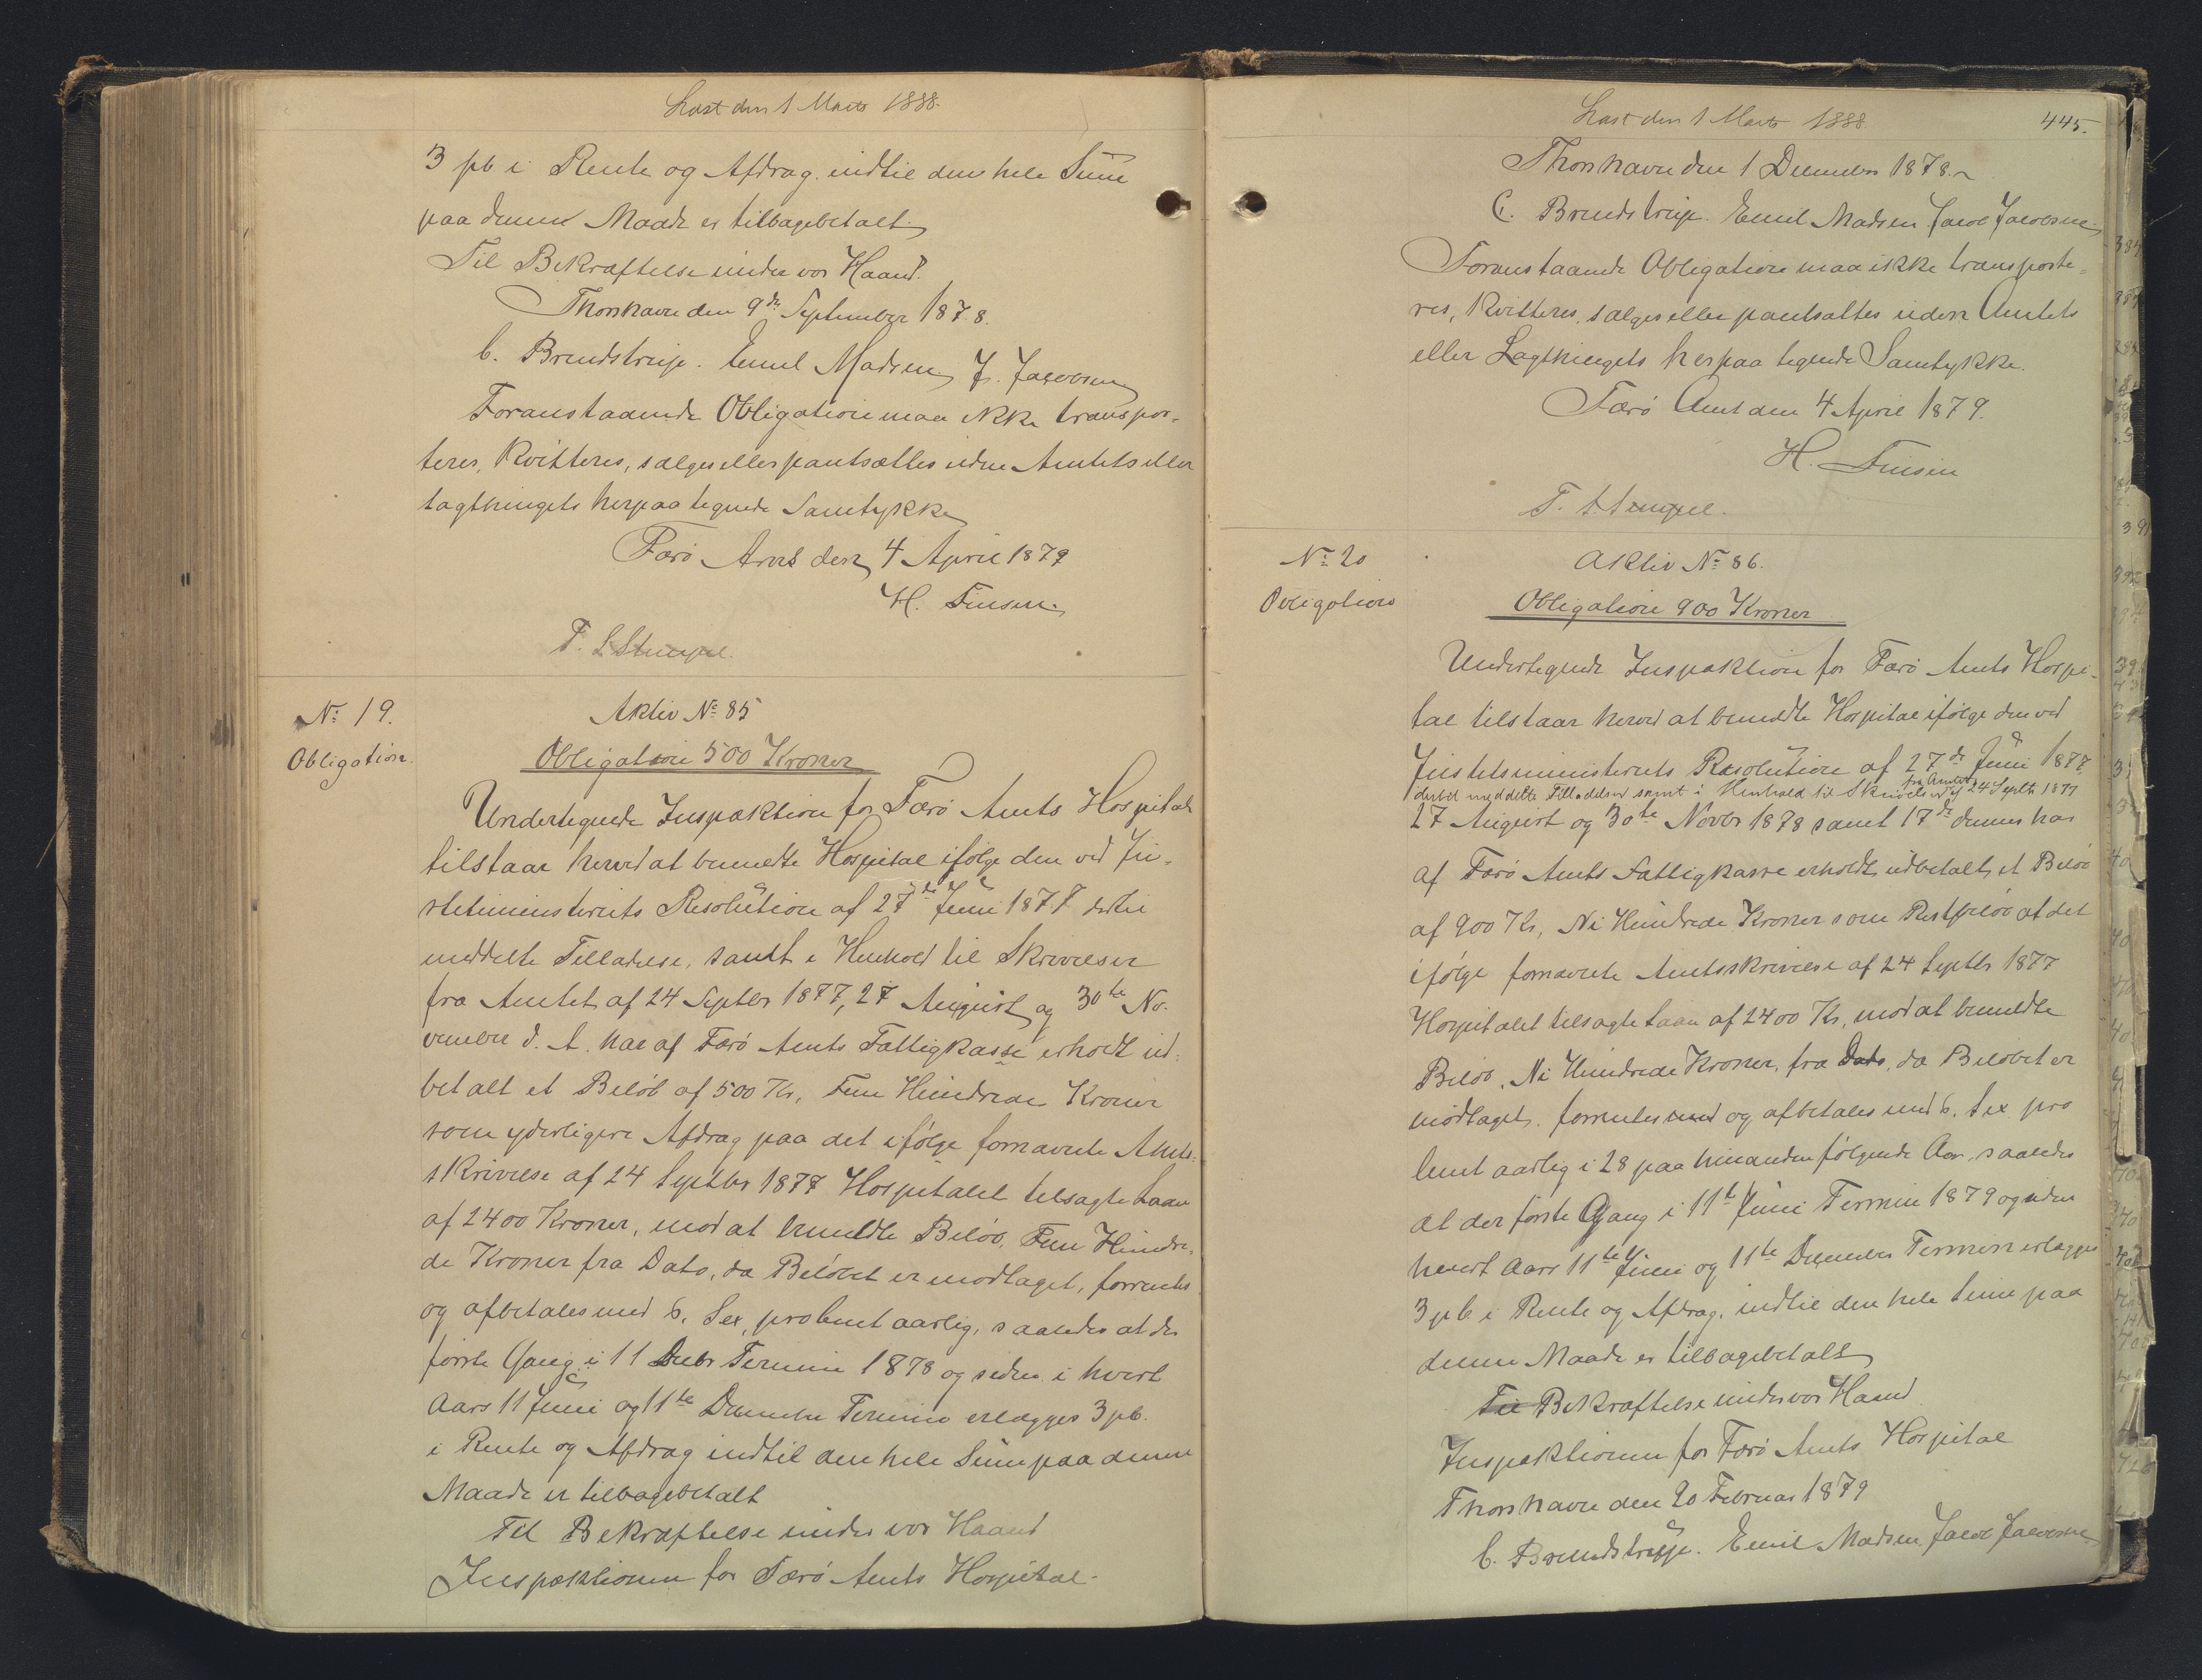 Læst den 1 Marts 1888.
3 pC i Rente og Afdrag indtil den hele Sum
paa denne Maade er tilbagebetalt
Til Bekræftelse under vor Haand.
Thorshavn den 9de September 1878.
C. Brendstrup. Emil Madsen J. Jacobsen
Foranstaaende Obligation maa ikke transpor-
teres, kvitteres, sælges eller pantsættes uden Amtets eller
Lagthingets herpaa tegnede Samtykke
Færø Amt den 4 April 1879
H. Finsen.
F. S. Stempel.
No 19.
Obligation.
Aktiv No 85
Obligation 500 Kroner
Undertegnede Inspektion for Færø Amts Hospital
tilstaar herved at bemeldte Hospital ifølge den ved Ju-
stitsministeriets Resolution af 27de Juni 1877 dertil
meddelte Tilladelse, samt i Henhold til Skrivelser
fra Amtet af 24 Septbr 1877, 27 August og 30te No-
vember d. A. har af Færø Amts Fattigkasse erholdt ud-
betalt et Beløb af 500 Kr, Fem Hundrede Kroner
som yderligere Afdrag paa det ifølge fornævnte Amts-
skrivelse af 24 Septbr 1877 Hospitalet tilsagte Laan
af 2400 Kroner, mod at bemeldte Beløb, Fem Hundre-
de Kroner fra Dato, da Beløbet er modtaget, forrentes
og afbetales med 6, Sex, proCent aarlig, saaledes at der
første Gang i 11 Decbr Termin 1878 og siden i hvert
Aars 11 Juni og 11te December Termin erlægges 3 pC.
i Rente og Afdrag indtil den hele Sum paa denne
Maade er tilbagebetalt
Til Bekræftelse under vor Haand
Inspektionen for Færø Amts Hospital.
Læst den 1 Marts 1888.
445.
Thorshavn den 1 December 1878.
C. Brendstrup. Emil Madsen Jacob Jacobsen
Foranstaaende Obligation maa ikke transporte-
res, kvitteres, sælges eller pantsættes uden Amtets
eller Lagthingets herpaa tegnede Samtykke.
Færø Amt den 4 April 1879.
H. Finsen
F. Stempel.
No 20
Obligation
Aktiv No 86.
Obligation 900 Kroner
Undertegnede Inspektion for Færø Amts Hospi-
tal tilstaar herved at bemeldte Hospital ifølge den ved
Justitsministeriets Resolution af 27de Juni 1877
dertil meddelte Tilladelse samt i Henhold til Skrivelser fra Amtet af 24 Septbr 1877
27 August og 30te Novbr 1878 samt 17de dennes har
af Færø Amts Fattigkasse erholdt udbetalt et Beløb
af 900 Kr, Ni Hundrede Kroner som Restbeløb af det
ifølge fornævnte Amtsskrivelse af 24 Septbr 1877
Hospitalet tilsagte Laan af 2400 Kr, mod at bemeldte
Beløb, Ni Hundrede Kroner, fra Dato, da Beløbet er
modtaget, forrentes med og afbetales med 6, Sex pro
Cent aarlig i 28 paa hinanden følgende Aar, saaledes
at der første Gang i 11te Juni Termin 1879 og siden
hvert Aars 11te Juni og 11te December Termin erlægges
3 pC i Rente og Afdrag, indtil den hele Sum paa
denne Maade er tilbagebetalt
Til Bekræftelse under vor Haand
Inspektionen for Færø Amts Hospital
Thorshavn den 20 Februar 1879
C. Brendstrup. Emil Madsen Jacob Jacobsen